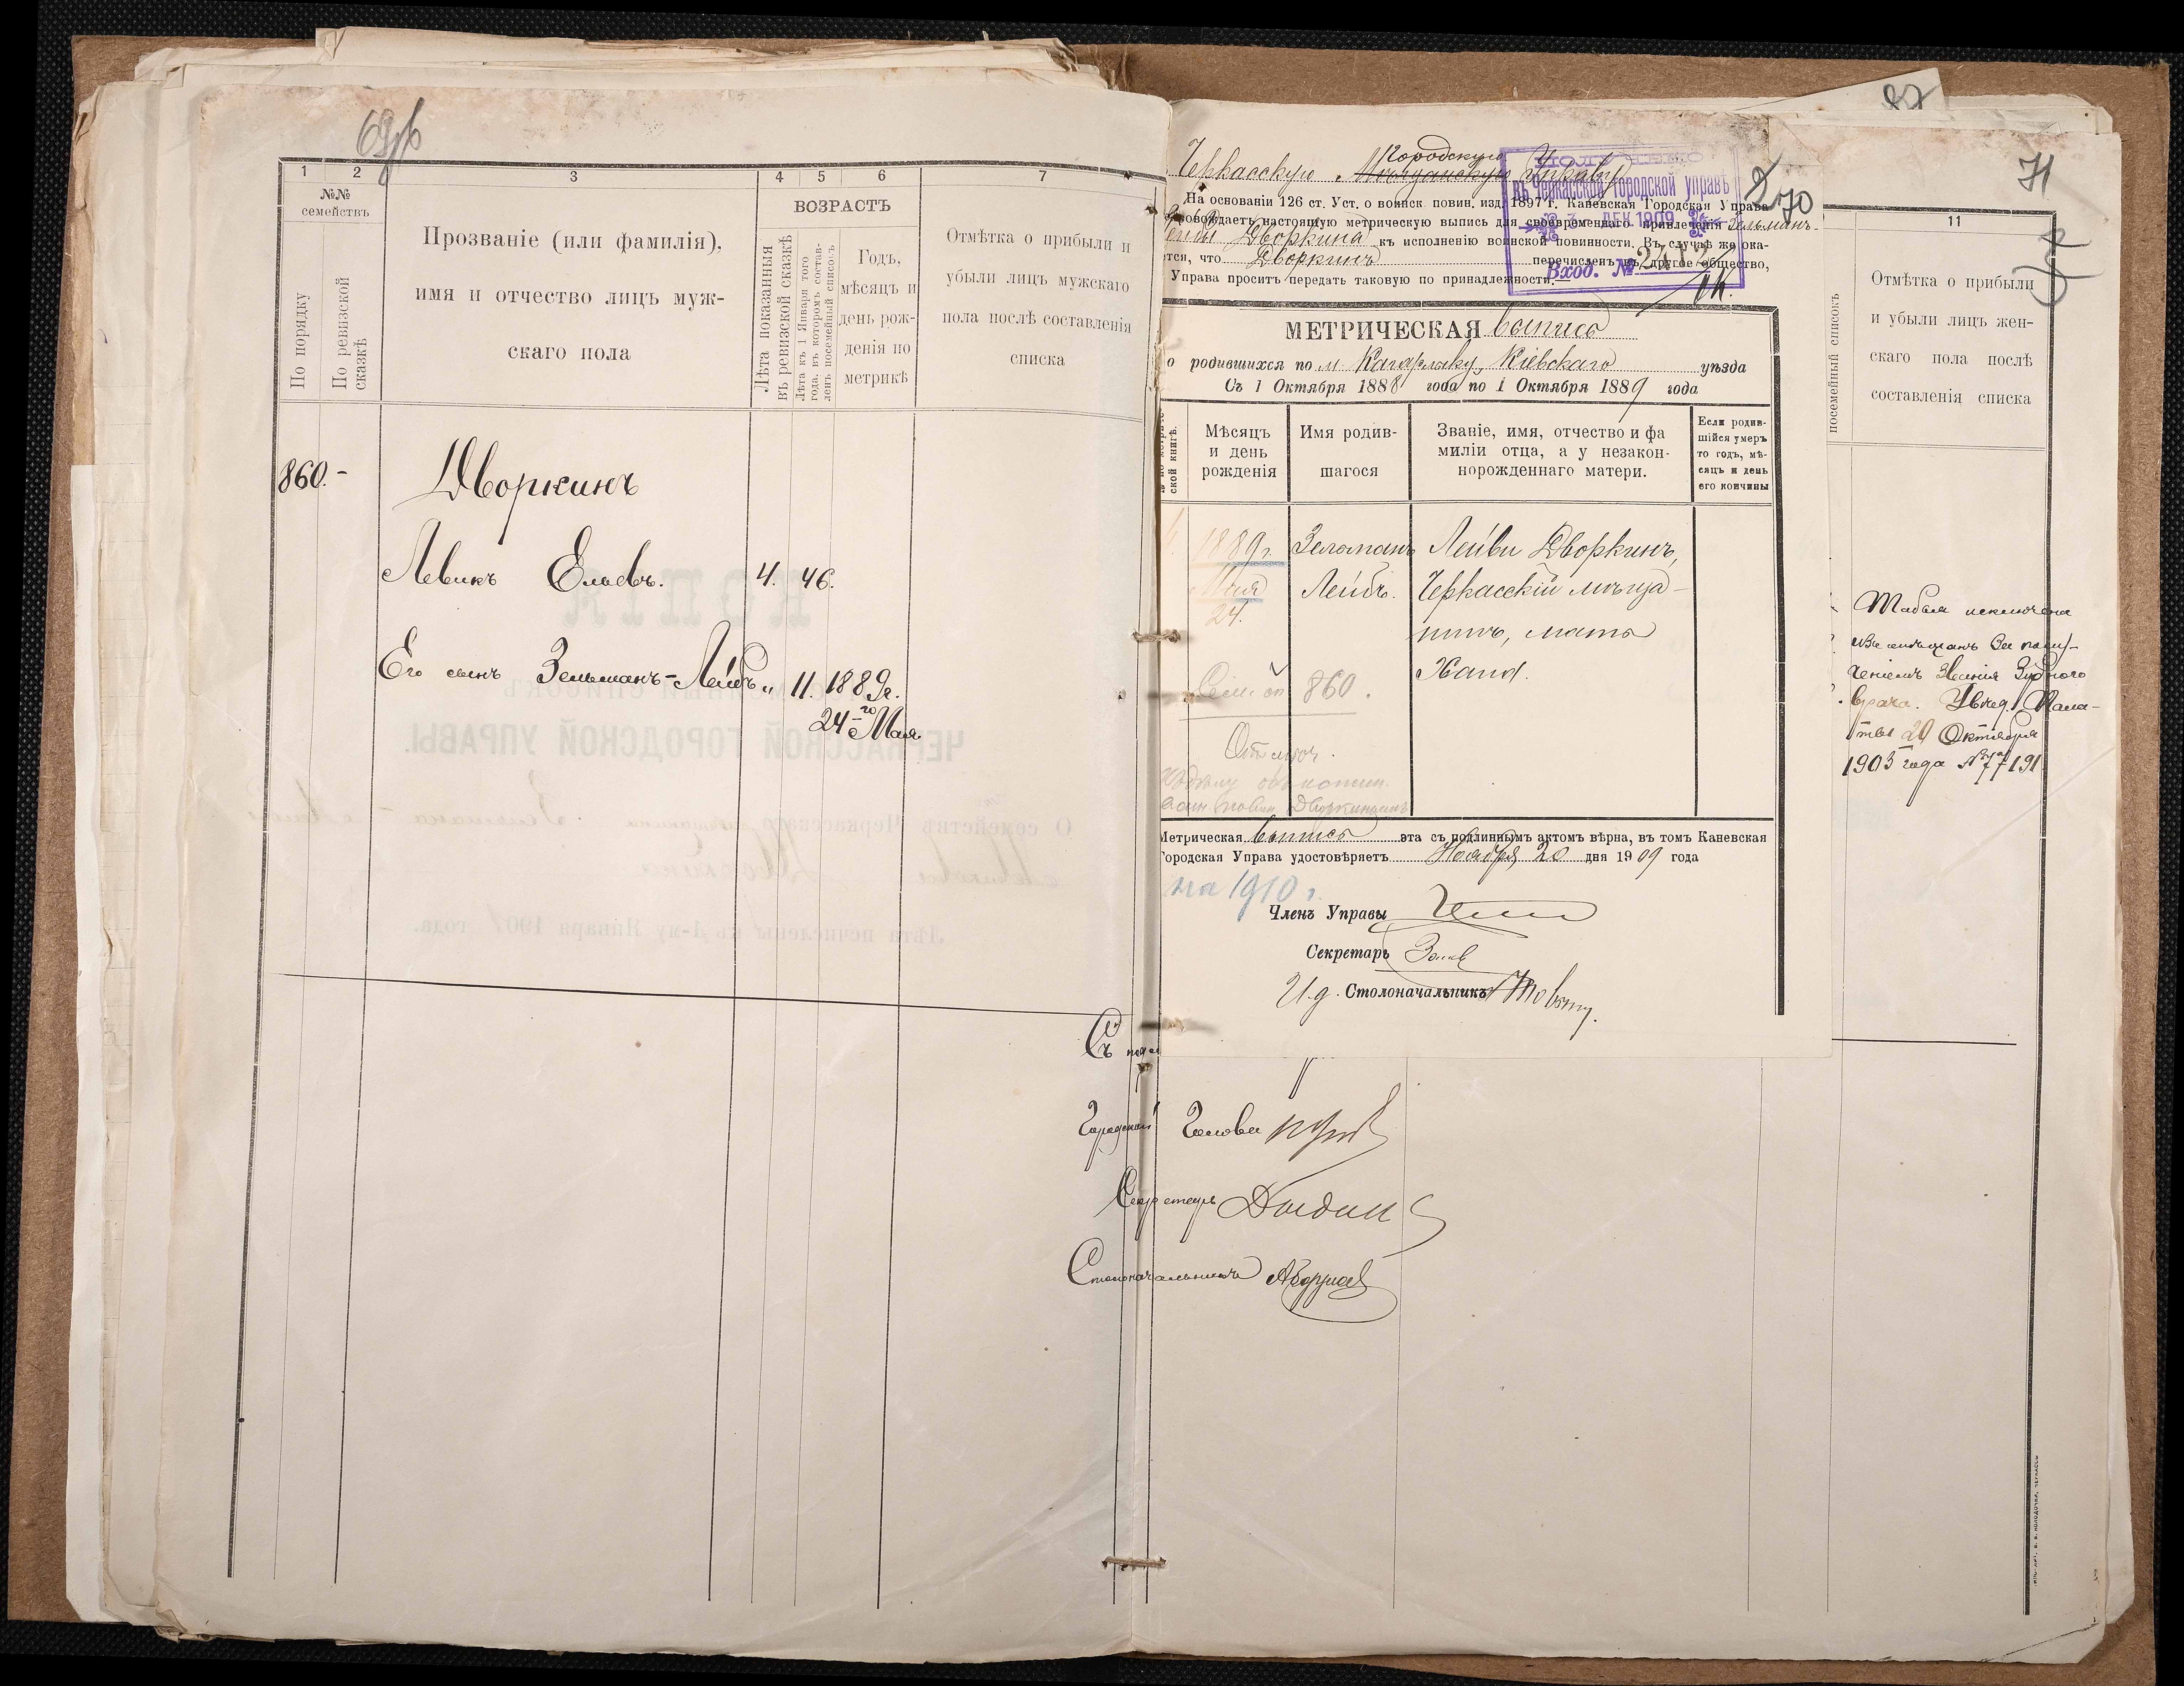 1
2
3
4
5
6
7
№№
семействъ
По порядку
По ревизской
сказкѣ
Прозваніе (или фамилія),
имя и отчество лицъ муж-
скаго пола
ВОЗРАСТЪ
Лѣта показанныя
въ ревизской сказкѣ
Лѣта къ 1 Января того
года, въ которомъ состав-
ленъ посемейный списокъ
Годъ,
мѣсяцъ и
день рож-
денія по
метрикѣ
Отмѣтка о прибыли и
убыли лицъ мужскаго
пола послѣ составленія
списка
860.-
Дворкинъ
Левикъ Ельевъ. 4. 46.
Его сынъ Зельманъ-Лейбъ „ 11. 1889г.
24-го Мая
Съ
Городской Голова
Секретарь
Столоначальникъ
Черкасскую Мѣщанскую Городскую Управу
На основаніи 126 ст. Уст. о воинск. повин. изд. 1897 г. Каневская Городская Управа
настоящую метрическую выпись для своевременнаго привлеченія Зельманъ-
Дворкина къ исполненію воинской повинности. Въ случаѣ же ока-
что Дворкинъ перечисленъ въ другое общество,
Управа проситъ передать таковую по принадлежности.—
въ Черкасской Городской Управѣ
3 ДЕК 1909
Вход. №
270
МЕТРИЧЕСКАЯ выпись
о родившихся по м. Кагарлыку, Кіевскаго уѣзда
Съ 1 Октября 1888 года по 1 Октября 1889 года
ской книгѣ.
Мѣсяцъ
и день
рожденія
Имя родив-
шагося
Званіе, имя, отчество и фа
миліи отца, а у незакон-
норожденнаго матери.
Если родив-
шійся умеръ
то годъ, мѣ-
сяцъ и день
его кончины
1889 г. Зельманъ Лейви Дворкинъ,
Мая Лейбъ. Черкасскій мѣща-
24. нинъ, мать
Хана.
860.
Метрическая выпись эта съ подлиннымъ актомъ вѣрна, въ томъ Каневская
Городская Управа удостовѣряетъ Ноября 20 дня 1909 года
на 1910 г.
Членъ Управы
Секретарь
И.д. Столоначальникъ
71
11
посемейный списокъ
Отмѣтка о прибыли
и убыли лицъ жен-
скаго пола послѣ
составленія списка
исключена
изъ мѣщанъ за полу-
ченіемъ званія Зубного
врача. Пала-
ты 20 Октября
1903 года № 77191